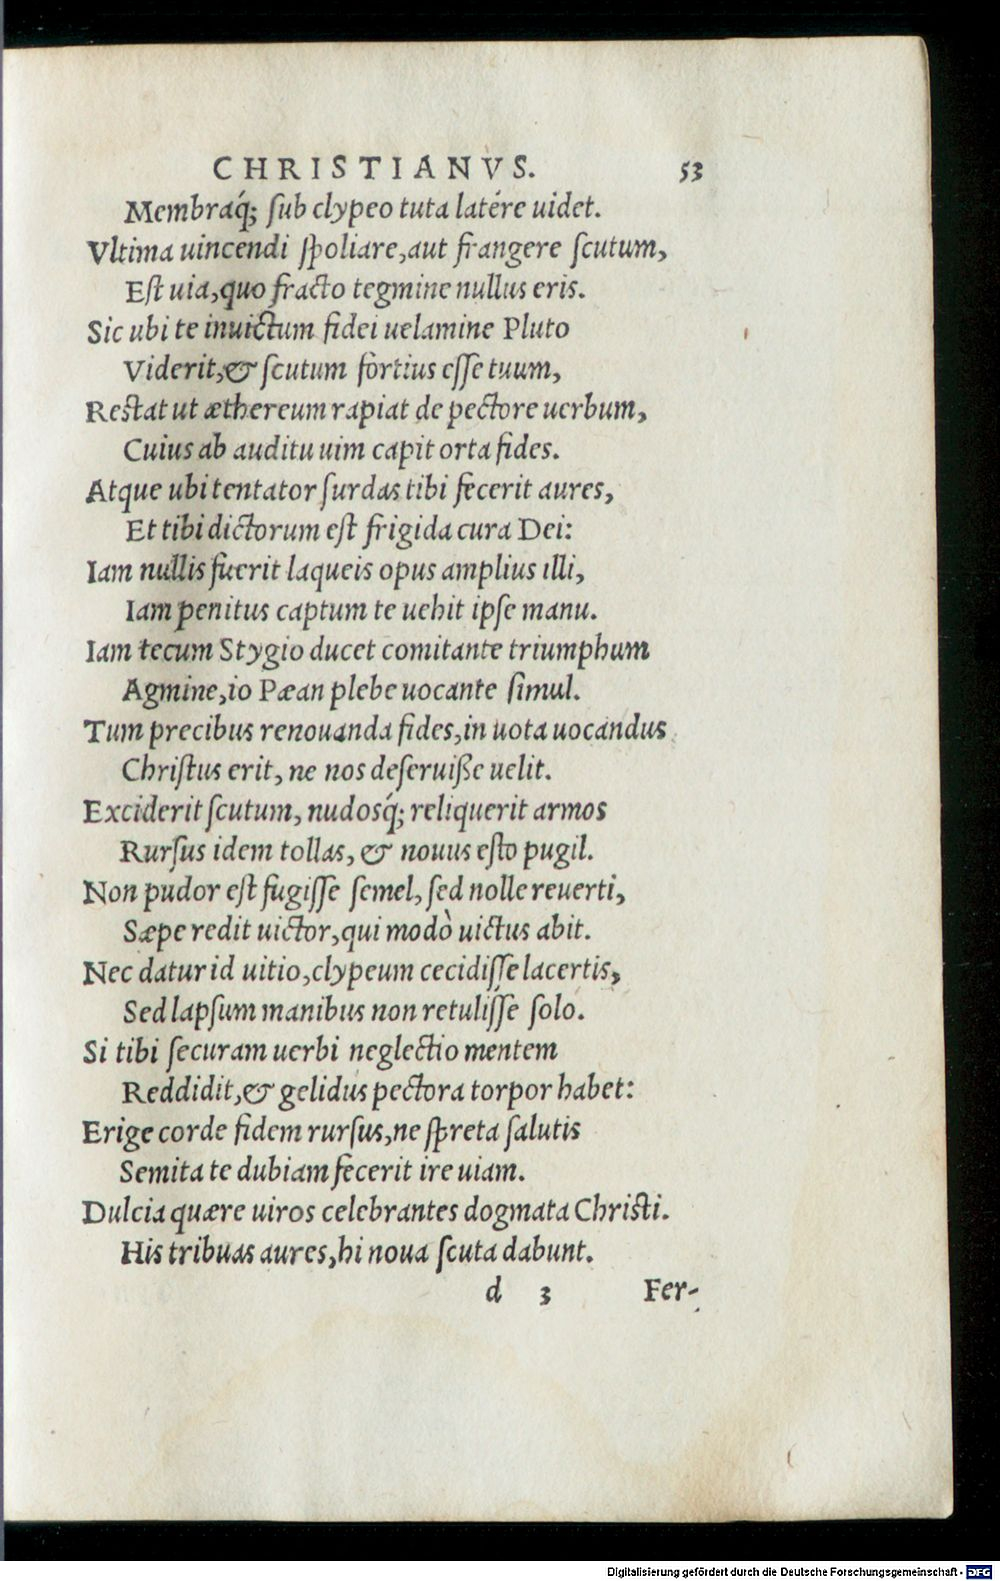 CHRISTIANVS. 53
Membraq́; ſub clypeo tuta latére uidet.
Vltima uincendi ſpoliare, aut frangere ſcutum,
Eſt uia, quo fracto tegmine nullus eris.
Sic ubi te inuictum fidei uelamine Pluto
Viderit, & ſcutum fortius eſſe tuum,
Reſtat ut æthereum rapiat de pectore uerbum,
Cuius ab auditu uim capit orta fides.
Atque ubi tentator ſurdas tibi fecerit aures,
Et tibi dictorum eſt frigida cura Dei:
Iam nullis fuerit laqueis opus amplius illi,
Iam penitus captum te uehit ipſe manu.
Iam tecum Stygio ducet comitante triumphum
Agmine, io Pæan plebe uocante ſimul.
Tum precibus renouanda fides, in uota uocandus
Chriſtus erit, ne nos deſeruiße uelit.
Exciderit ſcutum, nudosq́; reliquerit armos
Rurſus idem tollas, & nouus eſto pugil.
Non pudor eſt fugiſſe ſemel, ſed nolle reuerti,
Sæpe redit uictor, qui modò uictus abit.
Nec datur id uitio, clypeum cecidiſſe lacertis,
Sed lapſum manibus non retuliſſe ſolo.
Si tibi ſecuram uerbi neglectio mentem
Reddidit, & gelidus pectora torpor habet:
Erige corde fidem rurſus, ne ſpreta ſalutis
Semita te dubiam fecerit ire uiam.
Dulcia quære uiros celebrantes dogmata Chriſti.
His tribuas aures, hi noua ſcuta dabunt.
d 3 Fer-
Digitalisierung gefördert durch die Deutsche Forschungsgemeinschaft - DFG